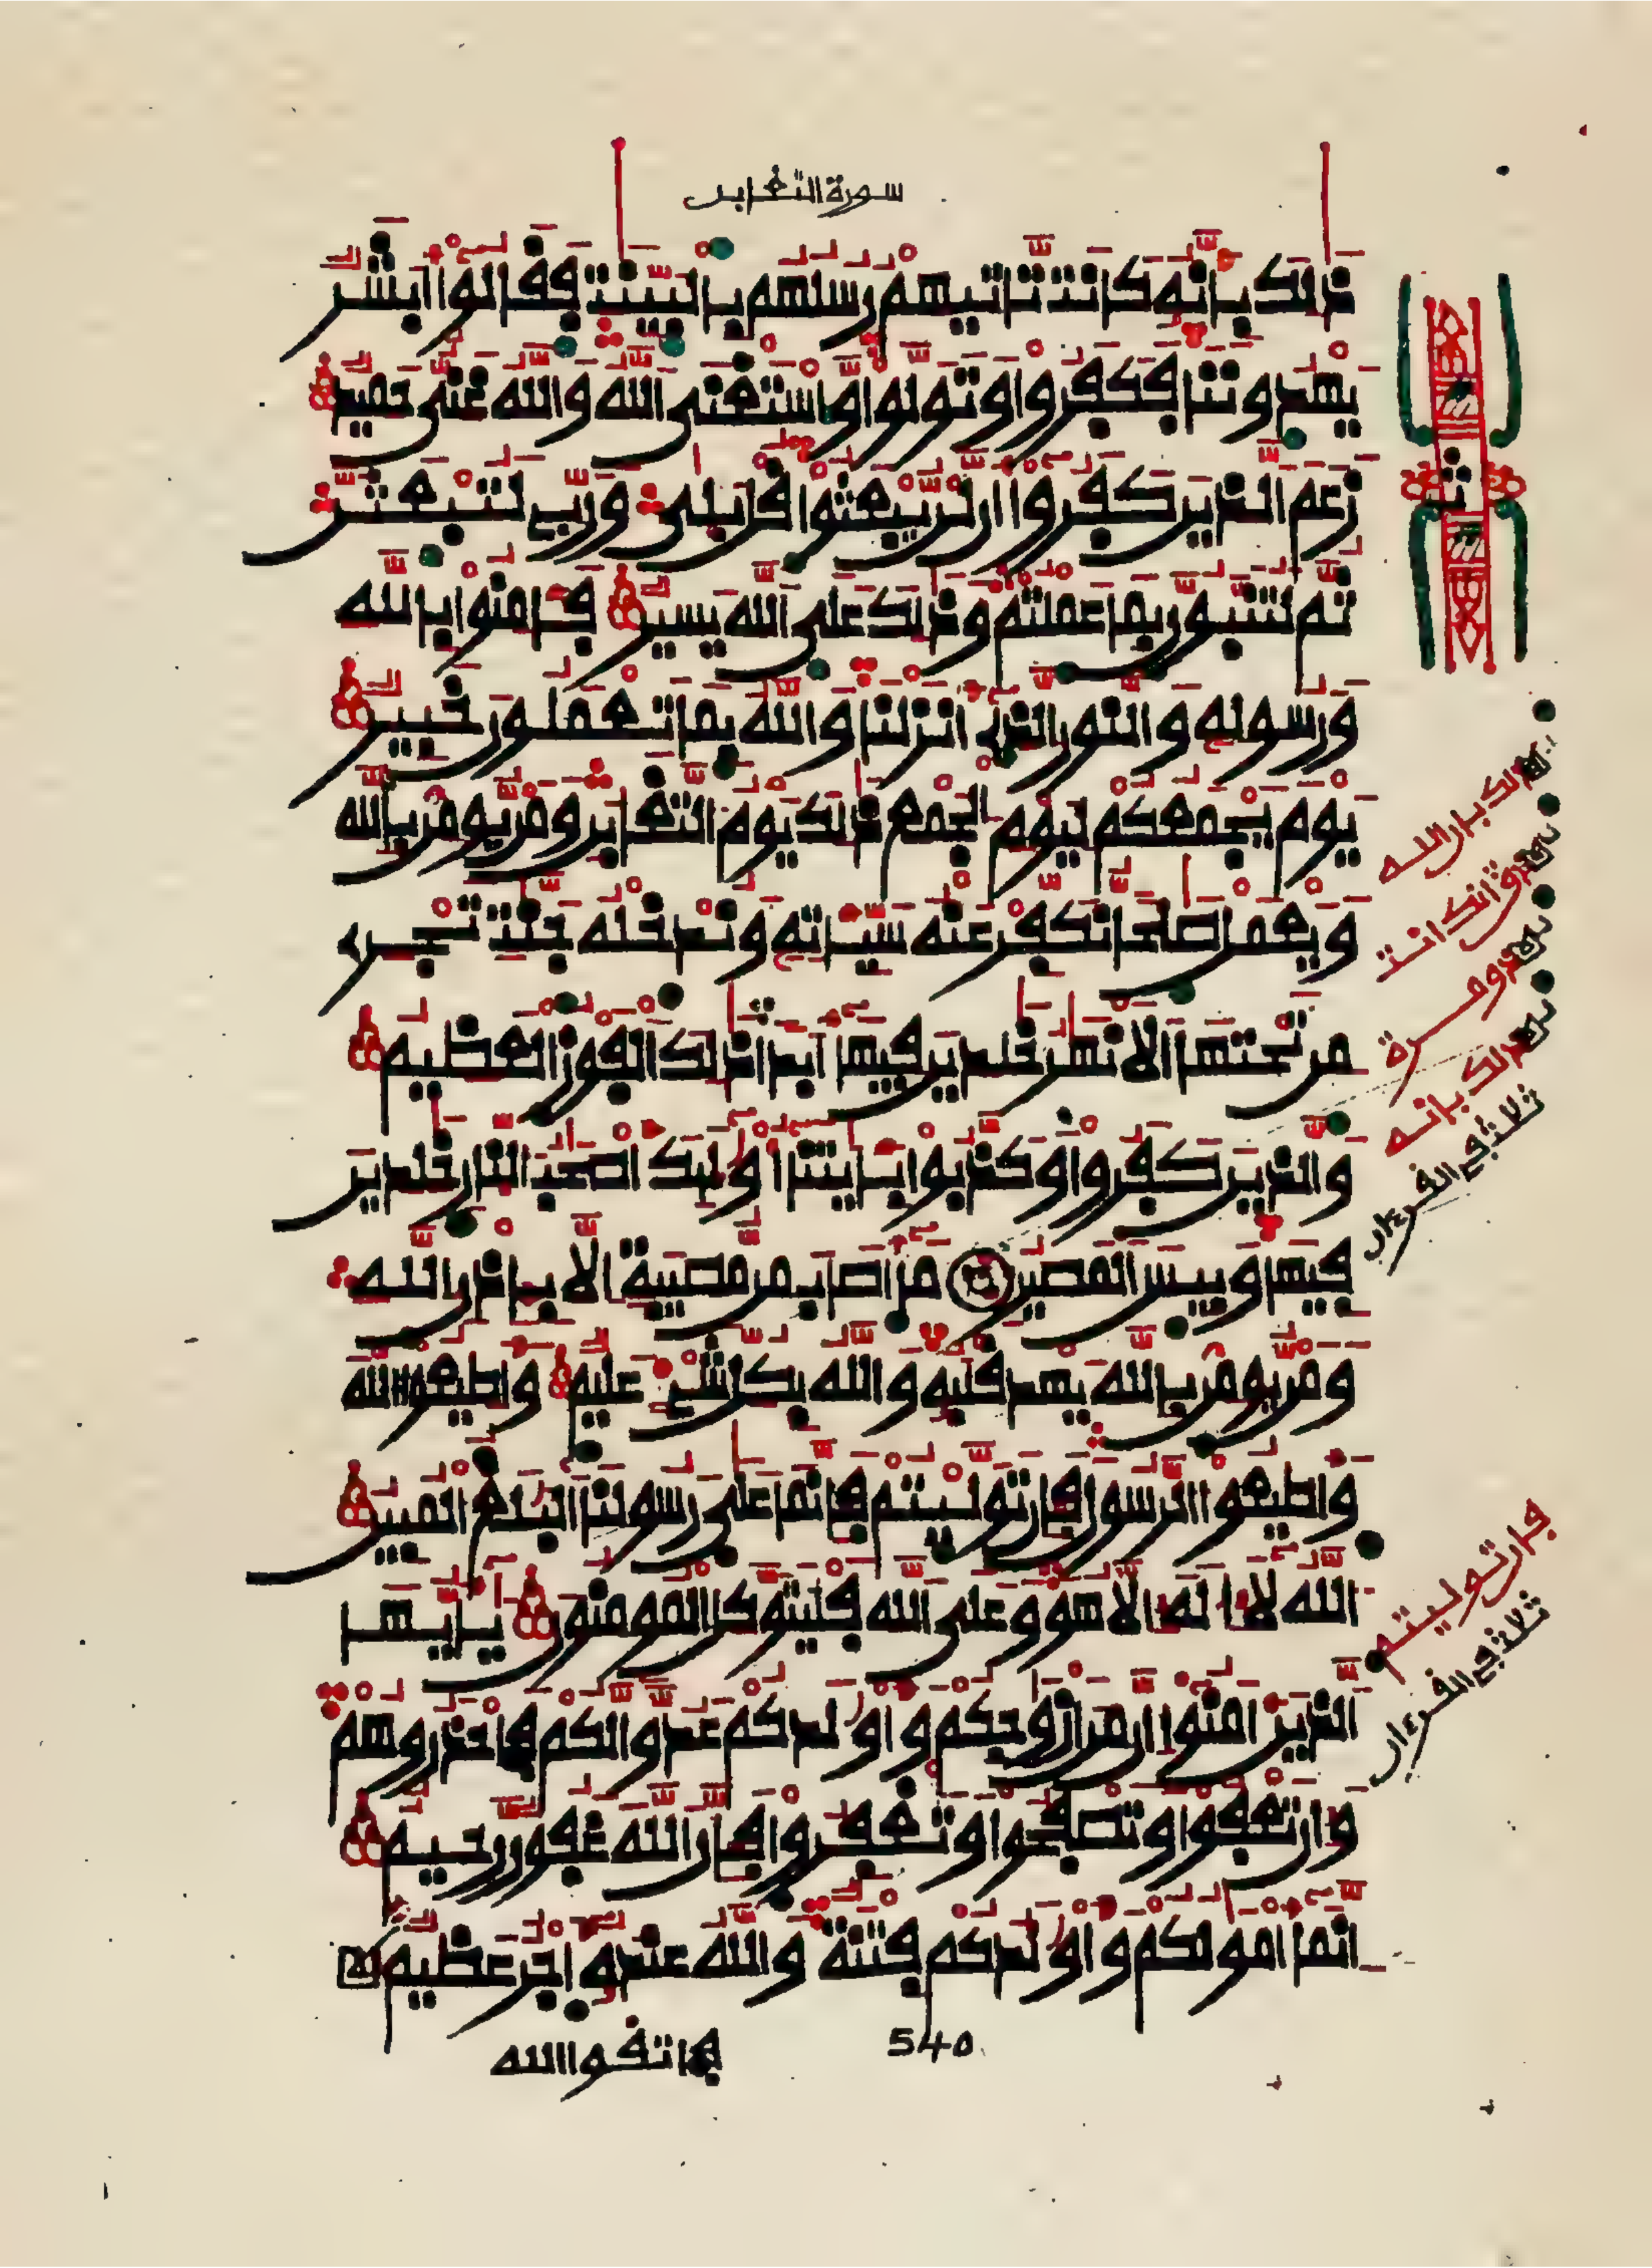 سورة التغابن
ذلك بأنه كانت تأتيهم رسلهم بالبينت فقالوا أبشر
يهدوننا فكفروا وتولوا واستغنى الله والله غني حميد
زعم الذين كفروا أن لن يبعثوا قل بلى وربي لتبعثن
ثم لتنبؤن بما عملتم وذلك على الله يسير فامنوا بالله
ورسوله والنور الذي أنزلنا والله بما تعملون خبير
يوم يجمعكم ليوم الجمع ذلك يوم التغابن ومن يومن بالله
ويعمل صلحا نكفر عنه سيئاته وندخله جنت تجري
من تحتها الانهر خلدين فيها أبدا ذلك الفوز العظيم
والذين كفروا وكذبوا بايتنا أولئك أصحب النار خلدين
فيها وبيس المصير ما أصاب من مصيبة إلا بإذن الله
ومن يومن بالله يهد قلبه والله بكل شيء عليم وأطيعوا الله
وأطيعوا الرسول فإن توليتم فإنما على رسولنا البلغ المبين
الله لا إله إلا هو وعلى الله فليتوكل المومنون يأيها
الذين امنوا إن من أزوجكم وأولدكم عدوا لكم فاحذروهم
وإن تعفوا وتصفحوا وتغفروا فإن الله غفور رحيم
إنما أمولكم وأولدكم فتنة والله عنده أجر عظيم
فاتقوا الله
540
ذلك بأن الله
كانت
مرة
ذلك بأنه
ثلاث في القرءان
فإن توليتم
ثلاث في القرءان